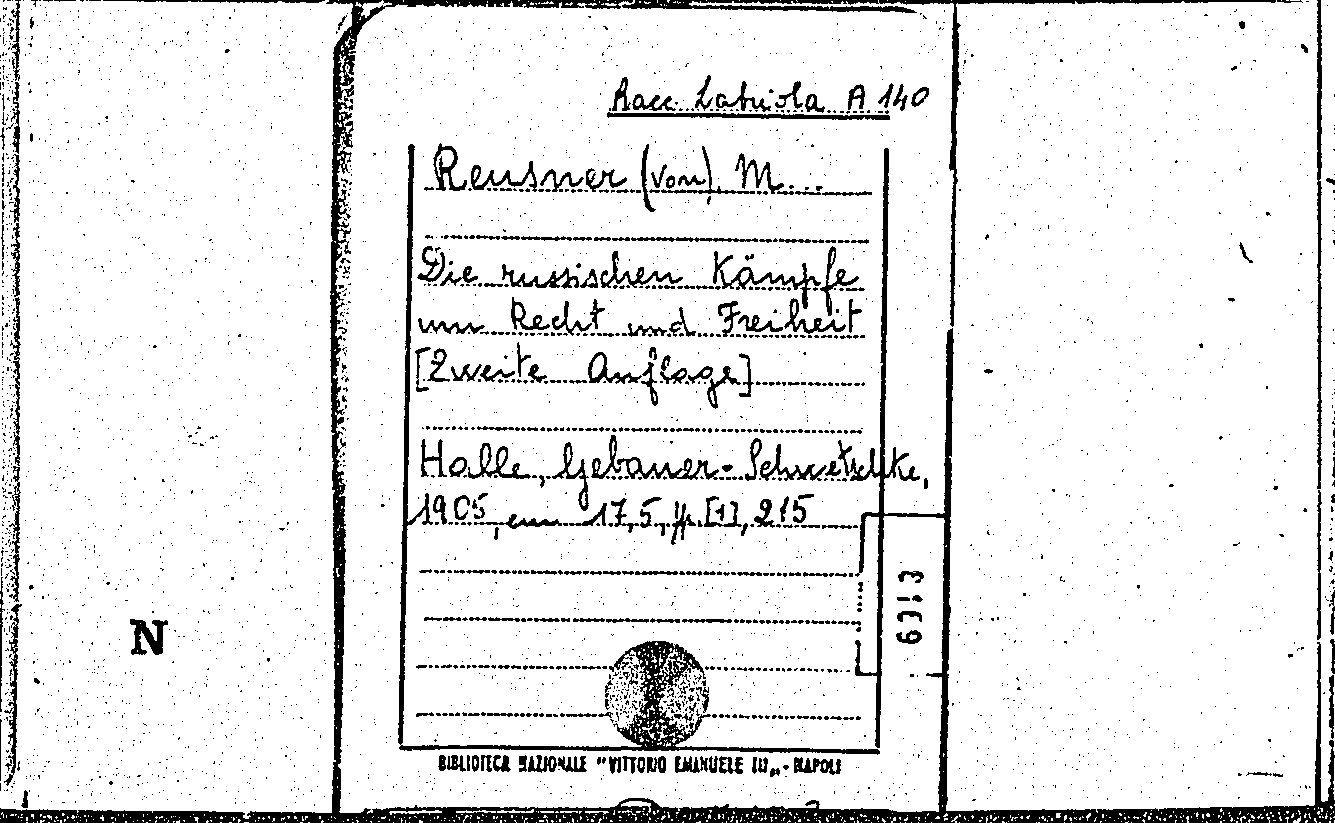 Racc. Labriola A 140
Reusner (von), M...
Die russischen Kämpfe
um Recht und Freiheit
[Zweite Auflage]
Halle, Gebauer-Schwetschke,
1905, cm 17,5, pp. [1], 215
6313
N
BIBLIOTECA NAZIONALE "VITTORIO EMANUELE III„ - NAPOLI